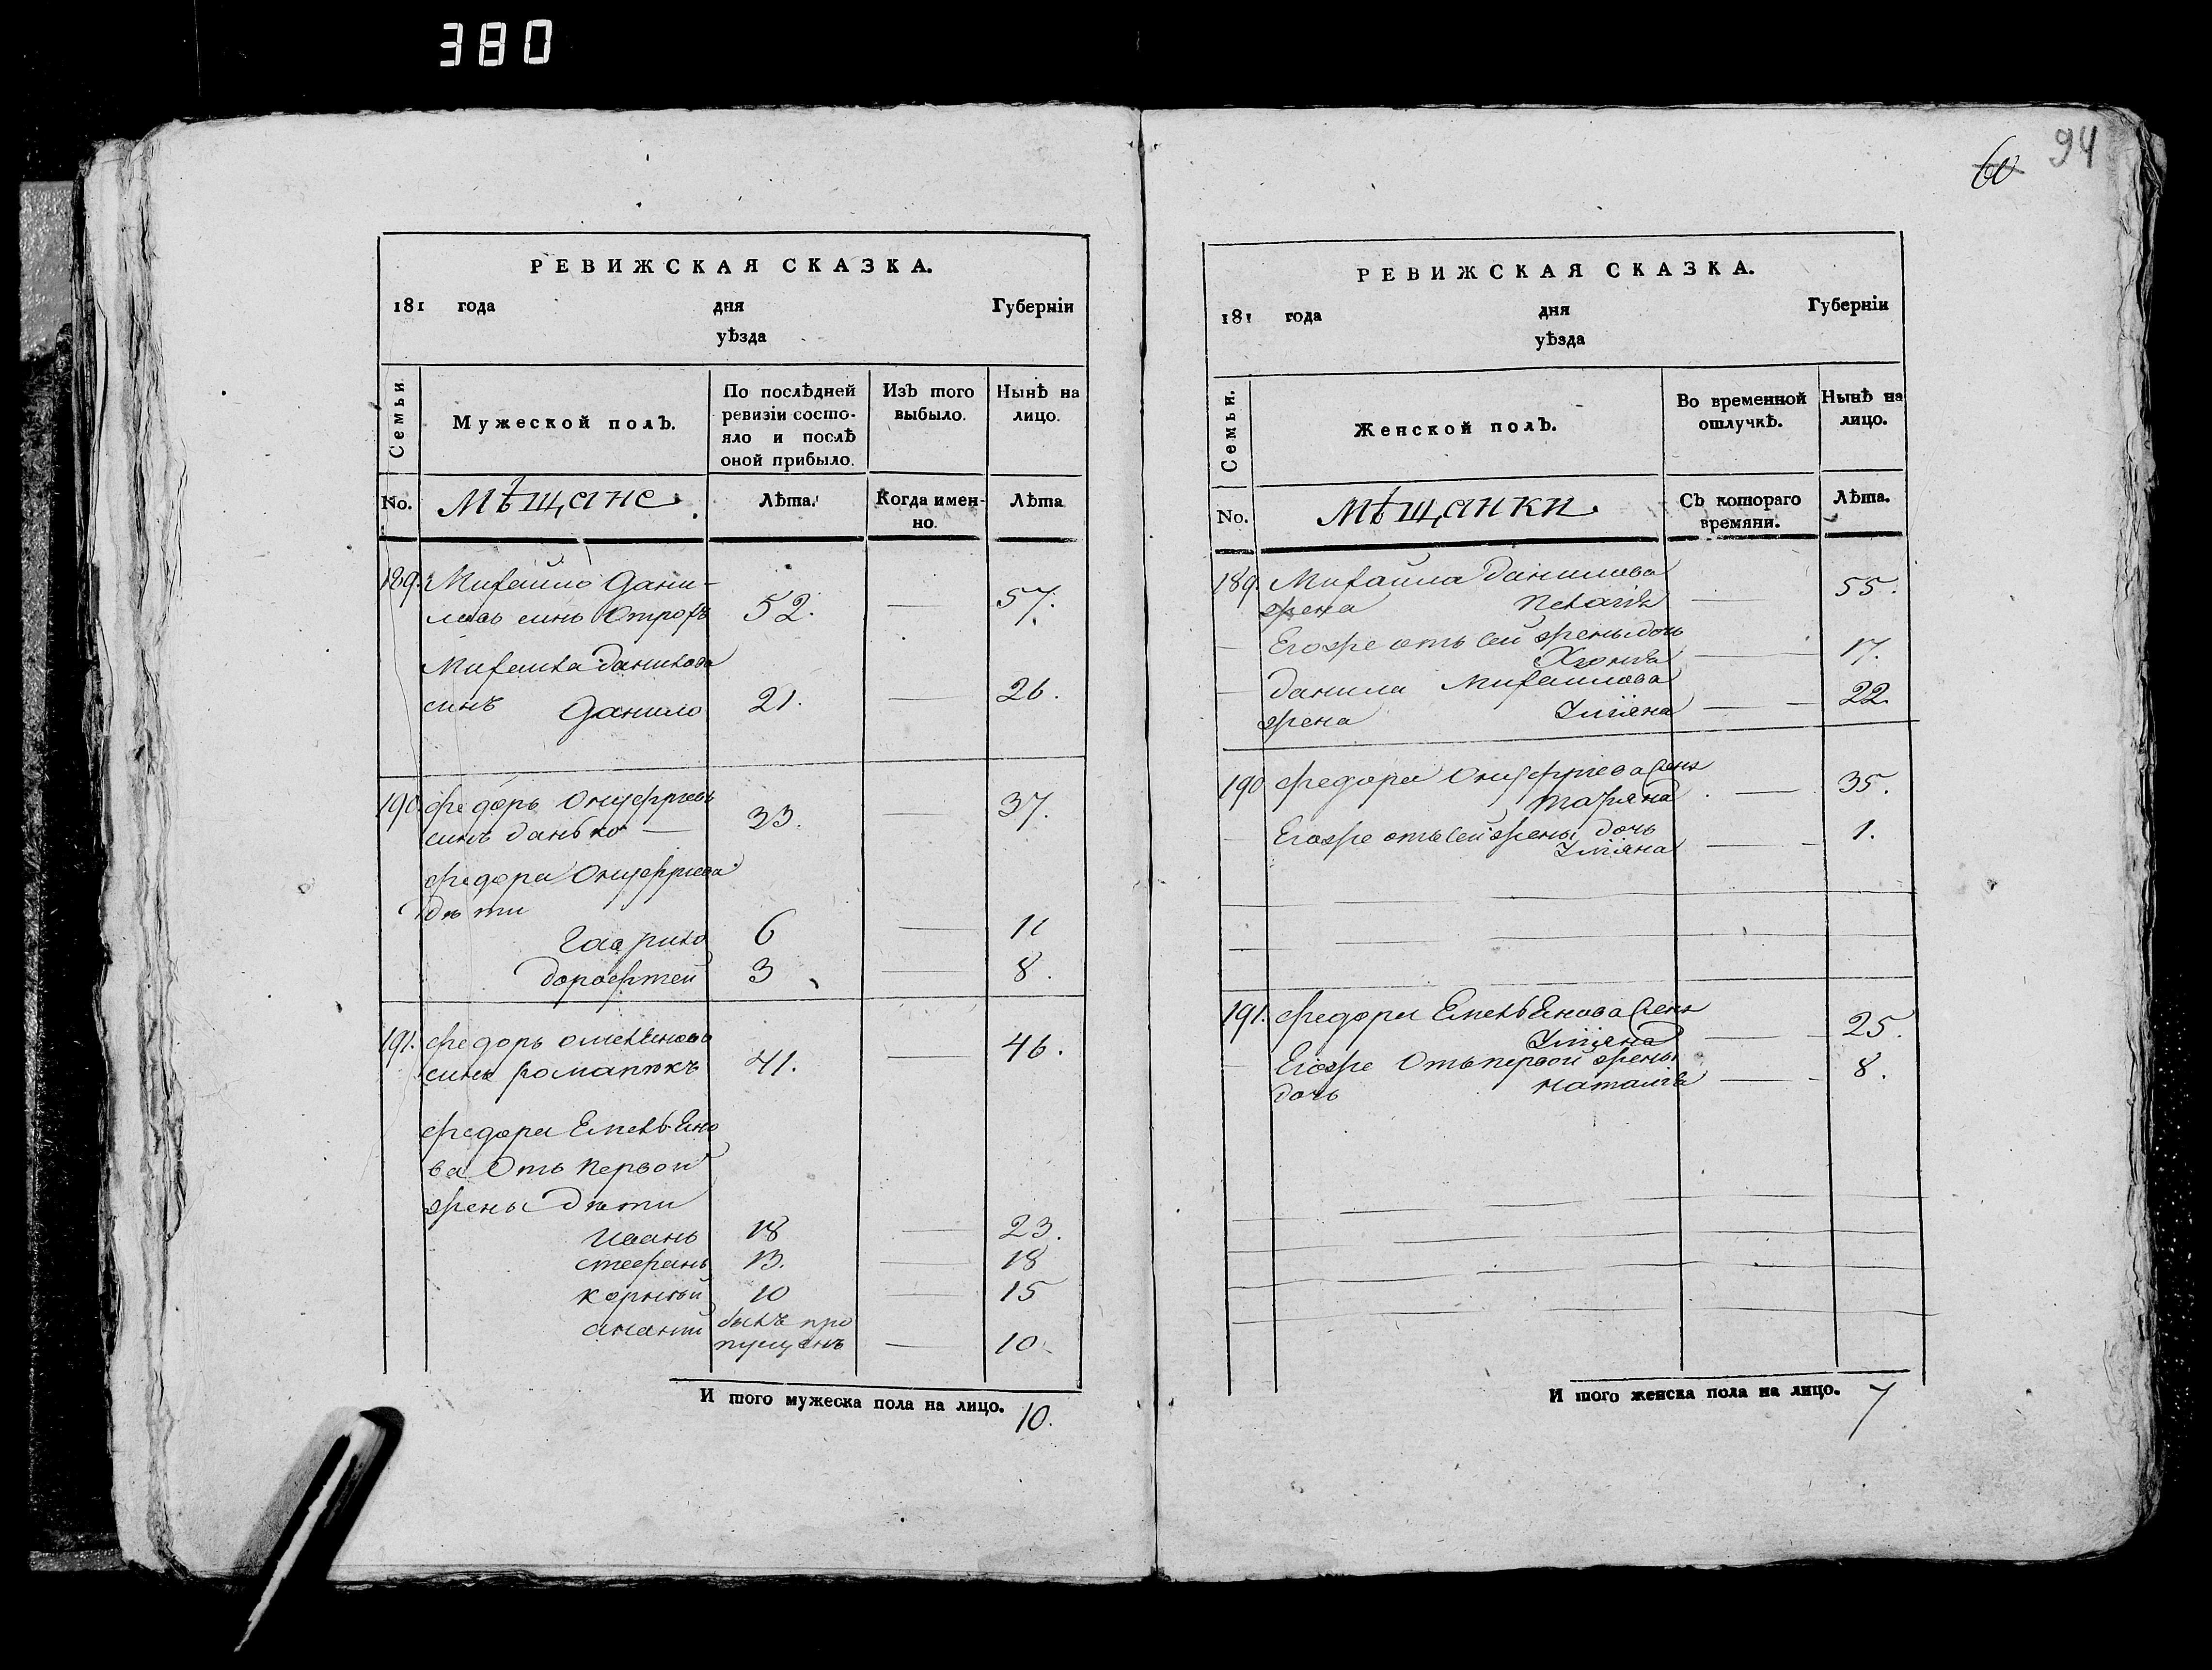 380
60 94
РЕВИЖСКАЯ СКАЗКА.
181 года дня Губерніи
уѣзда
Семьи.
Мужеской полъ.
По послѣдней
ревизіи состо-
яло и послѣ
оной прибыло.
Изъ того
выбыло.
Нынѣ на
лицо.
No. Мѣщане. Лѣта. Когда имен-
но. Лѣта
189. Михайло Дани-
ловъ синъ Отрохъ 52. — 57.
Михаила Данилова
синъ Данило 21. — 26.
190 Федоръ Онуфріевъ
синъ Данько — 33. — 37.
Федора Онуфріева
дѣти
Гаврило 6 — 11
Дорофтей 3 — 8.
191. Федоръ Омельяновъ
синъ Романюкъ 41. — 46.
Федора Емельяно
ва Отъ первой
жены дѣти
Иванъ 18 — 23.
Стефанъ 13. — 18
Корнѣй 10 — 15
Ананій былъ про
пущенъ — 10.
И того мужеска пола на лицо. 10.
РЕВИЖСКАЯ СКАЗКА.
181 года дня Губерніи
уѣзда
Семьи.
Женской полъ.
Во временной
отлучкѣ.
Нынѣ на
лицо.
No. Мѣщанки. Съ котораго
времяни. Лѣта.
189. Михайла Данилова
жена Пелагія — 55.
— Егоже отъ сей жены дочь
— 17.
— Данила Михаилова
жена Уліяна — 22.
190 Федора Онуфріева жена
Мар­яна — 35.
— Егоже отъ сей жены дочь
Уліяна — 1.
191. Федора Емельянова жена
Уліяна — 25.
— Егоже Отъ первой жены
дочь Наталія — 8.
И того женска пола на лицо. 7